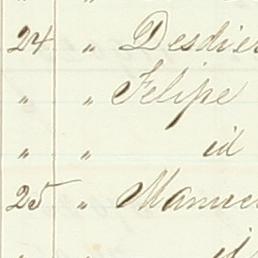 24 " Desdier
" " Felipe
" " id
25 " Manuel
" " id